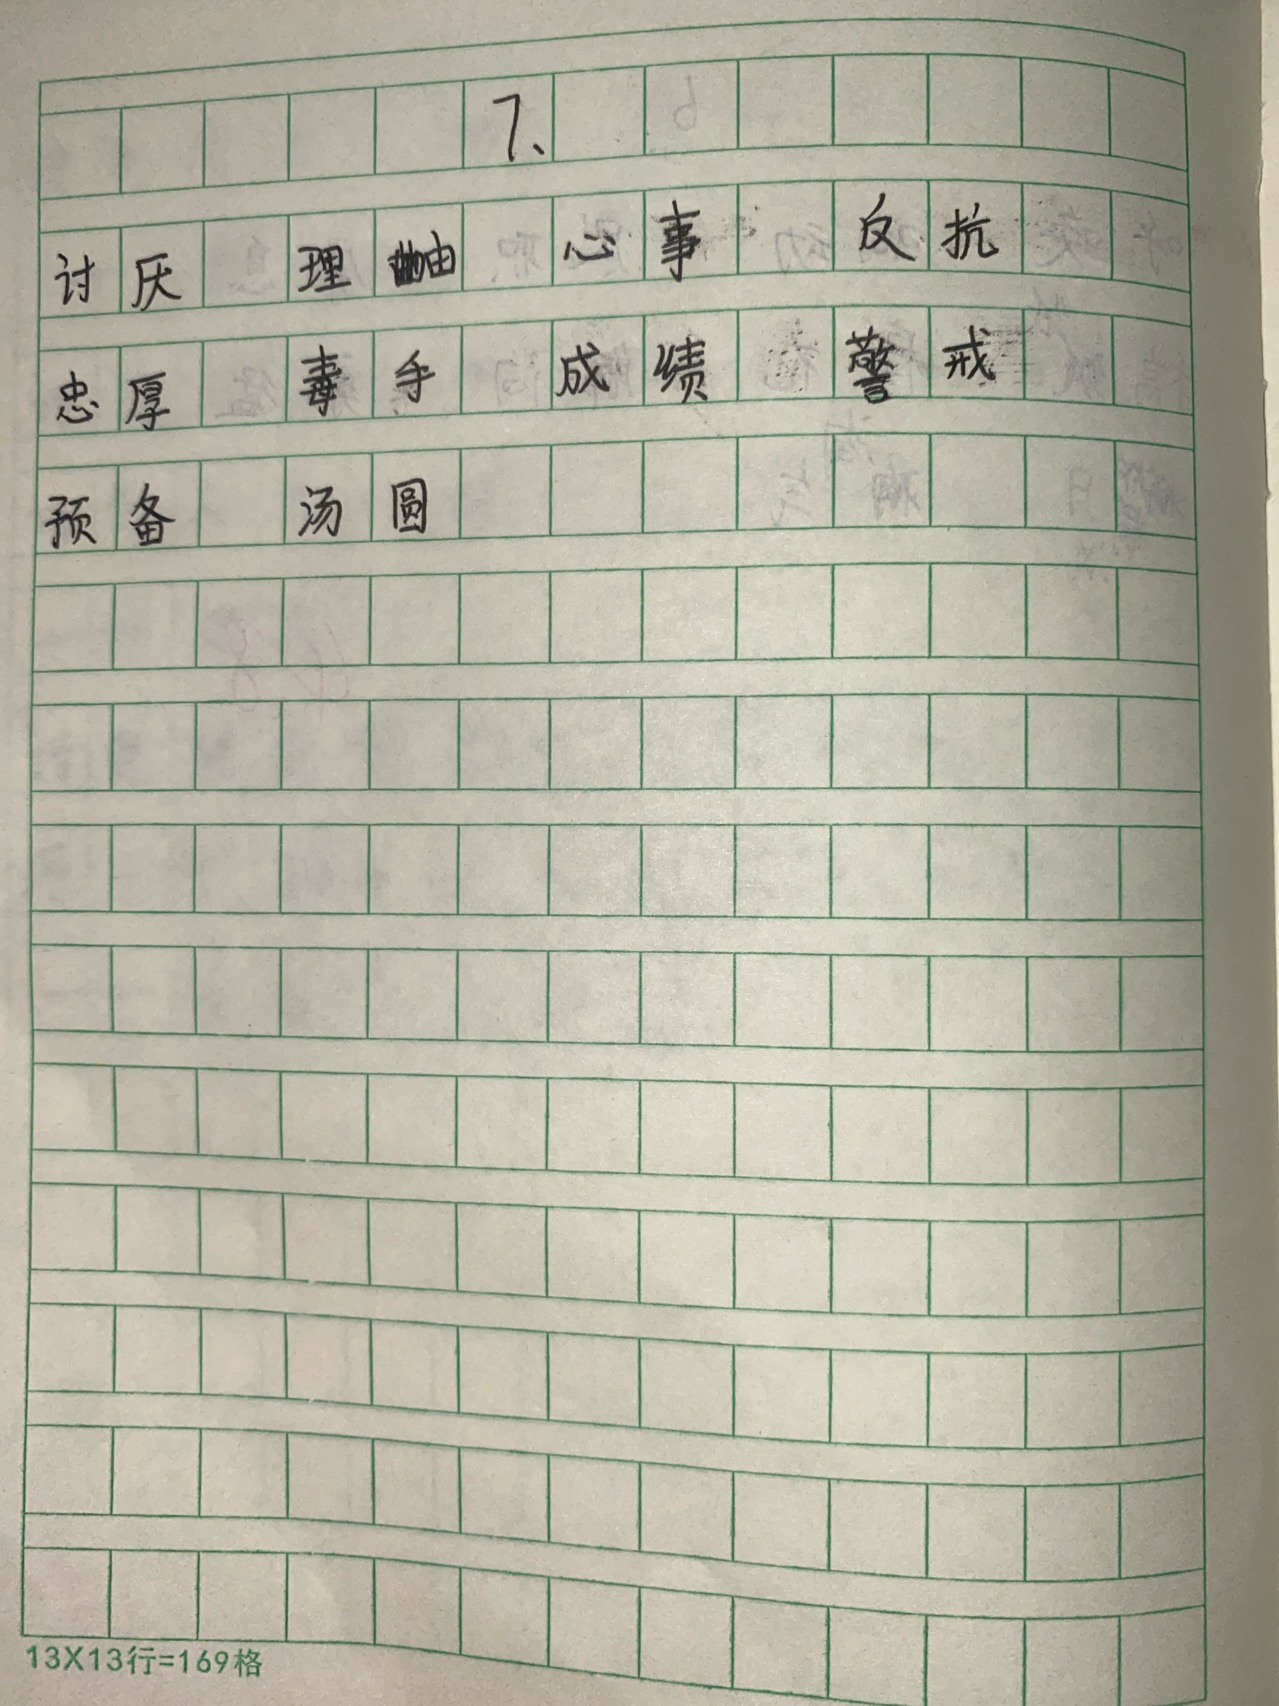 7、
讨厌 理由 心事 反抗
忠厚 毒手 成绩 警戒
预备 汤圆
13X13行=169格